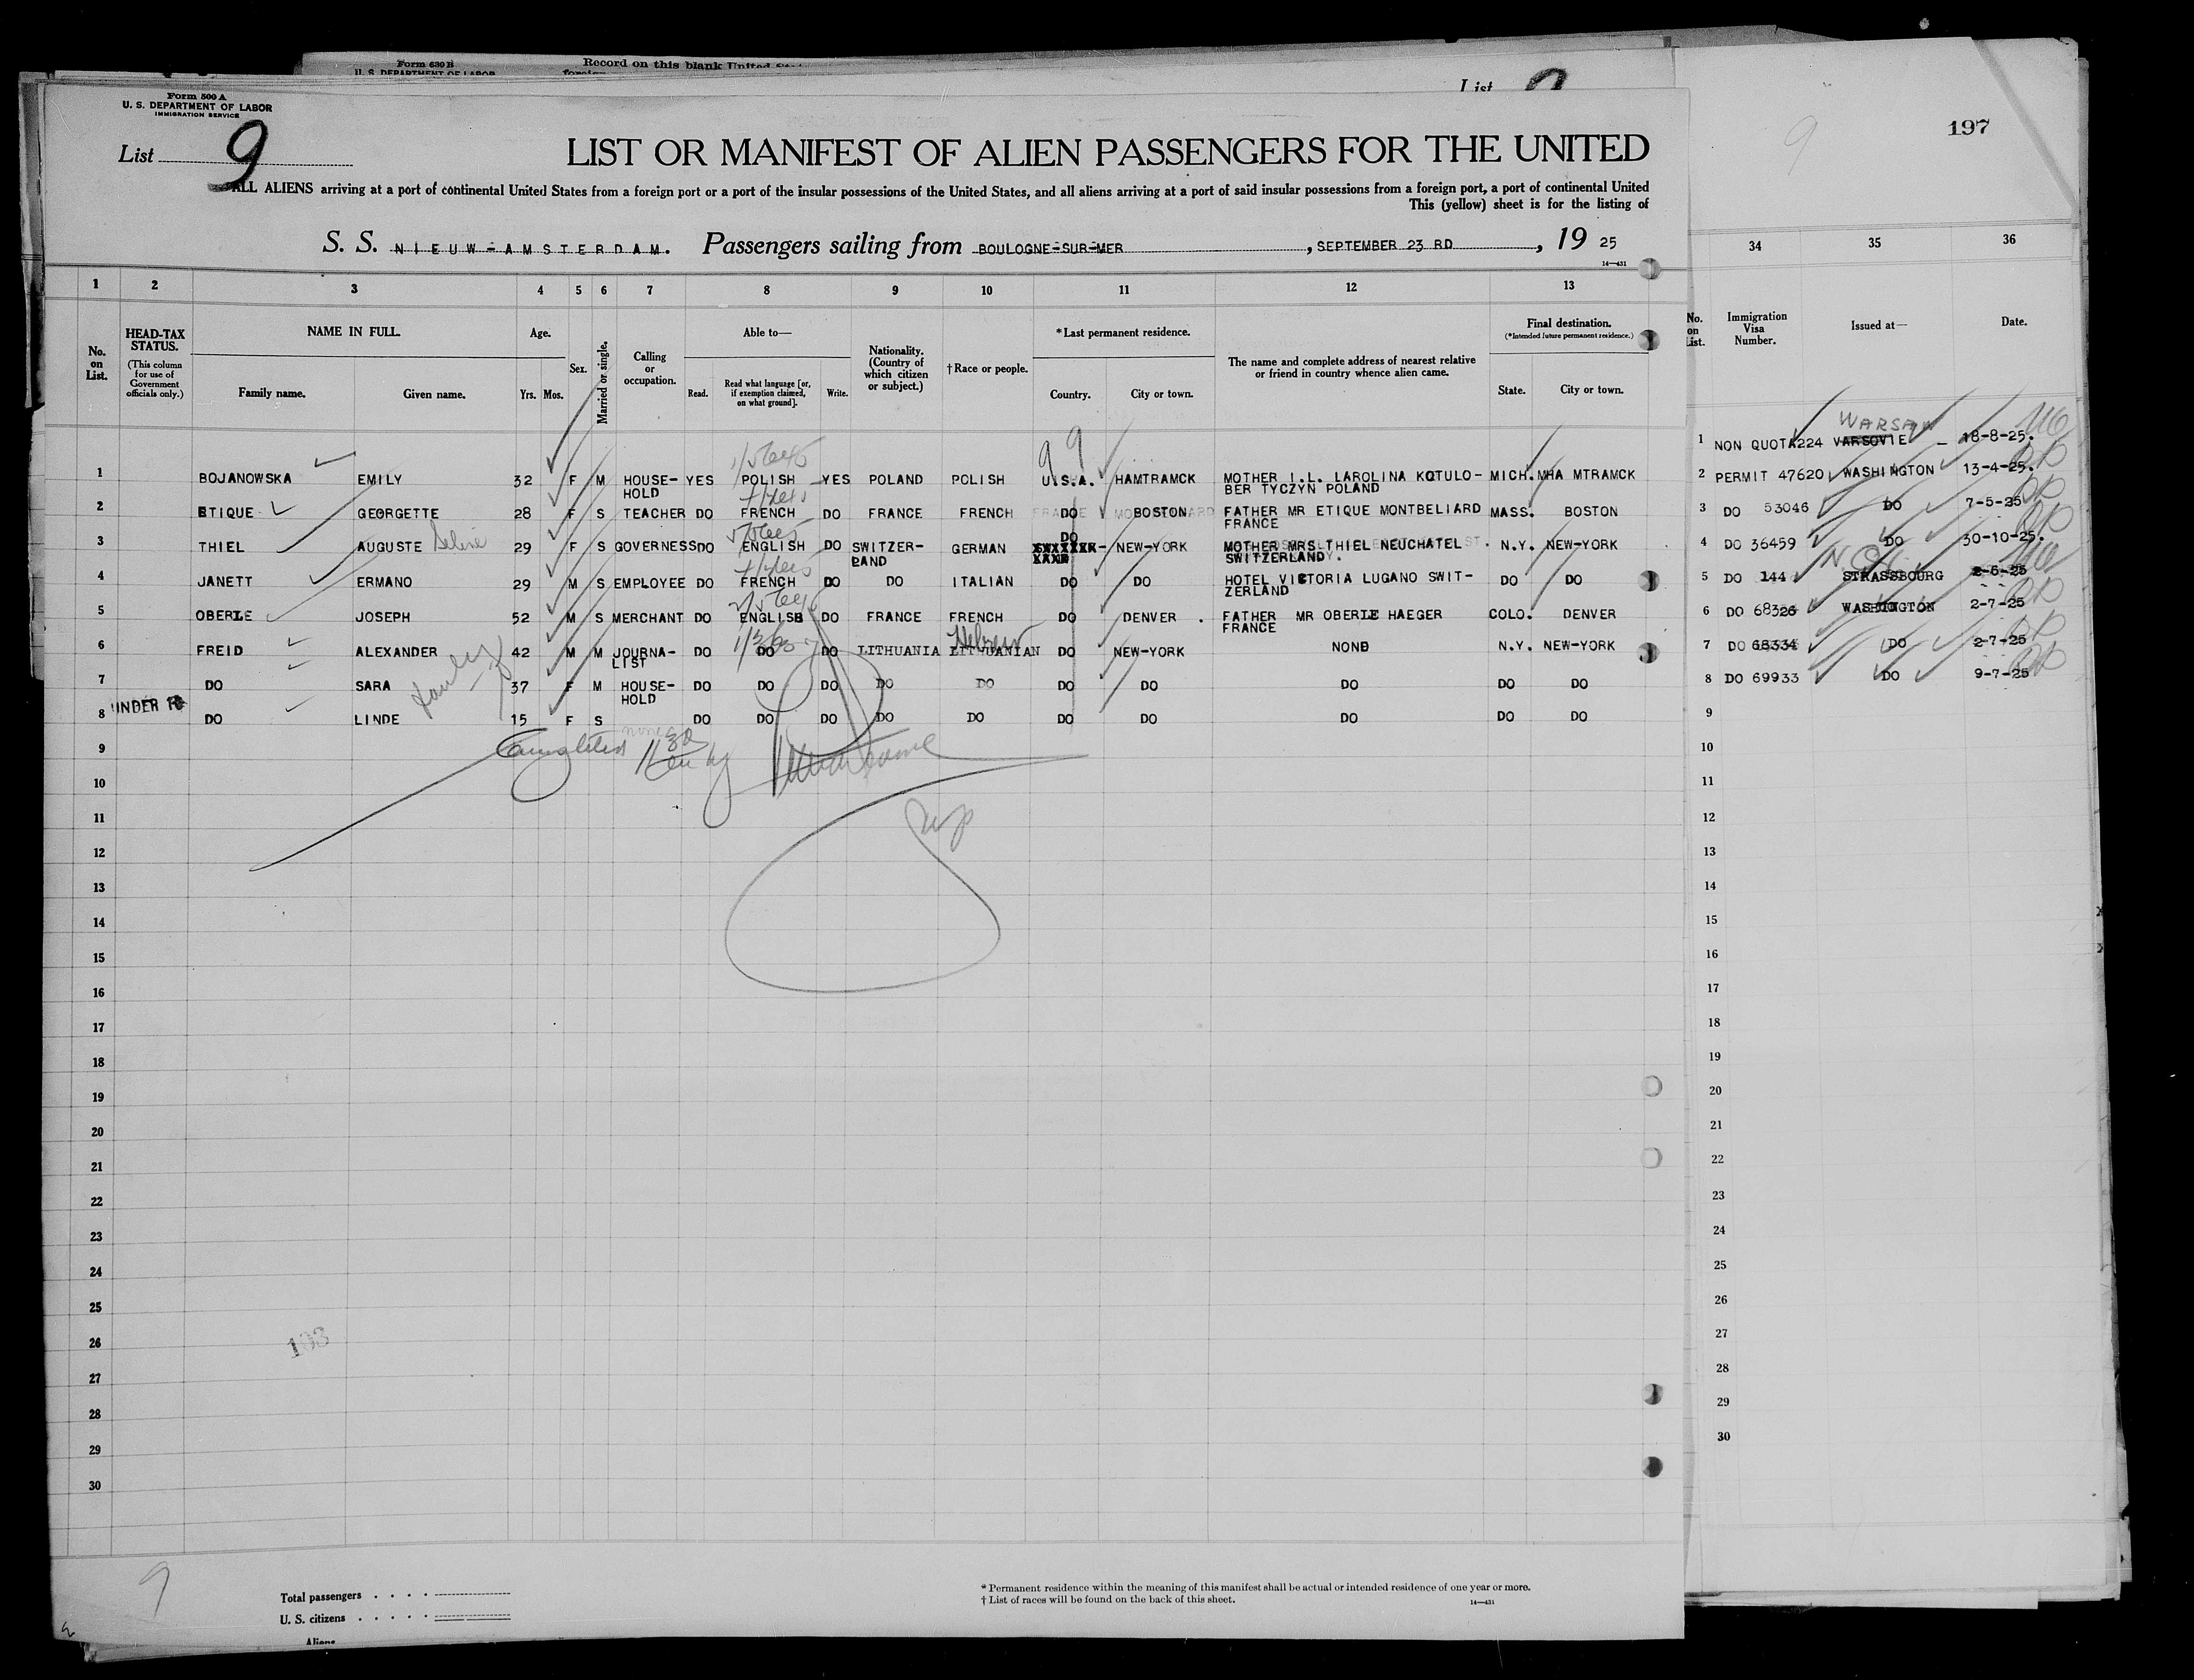 Form 630 B
U. S. DEPARTMENT OF LABOR
Record on this blank United
List 9
Form 500 A
U. S. DEPARTMENT OF LABOR
IMMIGRATION SERVICE
List 9
LIST OR MANIFEST OF ALIEN PASSENGERS FOR THE UNITED
ALL ALIENS arriving at a port of continental United States from a foreign port or a port of the insular possessions of the United States, and all aliens arriving at a port of said insular possessions from a foreign port, a port of continental United
This (yellow) sheet is for the listing of
S. S. NIEUW-AMSTERDAM. Passengers sailing from BOULOGNE-SUR-MER, SEPTEMBER 23 RD, 19 25
14—431
1 2 3 4 5 6 7 8 9 10 11 12 13
No. on List.
HEAD-TAX STATUS.
(This column for use of Government officials only.)
NAME IN FULL.
Family name. Given name.
Age.
Yrs. Mos.
Sex.
Married or single.
Calling or occupation.
Able to—
Read. Read what language [or, if exemption claimed, on what ground]. Write.
Nationality. (Country of which citizen or subject.)
†Race or people.
*Last permanent residence.
Country. City or town.
The name and complete address of nearest relative or friend in country whence alien came.
Final destination.
(*Intended future permanent residence.)
State. City or town.
99
1 BOJANOWSKA EMILY 32 F M HOUSE-HOLD YES POLISH YES POLAND POLISH U.S.A. HAMTRAMCK MOTHER I.L. LAROLINA KOTULO-BER TYCZYN POLAND MICH. HA MTRAMCK
2 ETIQUE GEORGETTE 28 F S TEACHER DO FRENCH DO FRANCE FRENCH DO BOSTON FATHER MR ETIQUE MONTBELIARD FRANCE MASS. BOSTON
3 THIEL AUGUSTE 29 F S GOVERNESS DO ENGLISH DO SWITZER-LAND GERMAN DO NEW-YORK MOTHER MRS THIEL NEUCHATEL SWITZERLAND. N.Y. NEW-YORK
4 JANETT ERMANO 29 M S EMPLOYEE DO FRENCH DO DO ITALIAN DO DO HOTEL VICTORIA LUGANO SWIT-ZERLAND DO DO
5 OBERLE JOSEPH 52 M S MERCHANT DO ENGLISH DO FRANCE FRENCH DO DENVER . FATHER MR OBERLE HAEGER FRANCE COLO. DENVER
6 FREID ALEXANDER 42 M M JOURNA-LIST DO DO DO LITHUANIA LITHUANIAN Hebrew DO NEW-YORK NONE N.Y. NEW-YORK
7 DO SARA 37 F M HOUSE-HOLD DO DO DO DO DO DO DO DO DO DO
8 UNDER 16 DO LINDE 15 F S none DO DO DO DO DO DO DO DO DO DO
9
10
11
12
13
14
15
16
17
18
19
20
21
22
23
24
25
26
27
28
29
30
9
Total passengers
U. S. citizens
Aliens
* Permanent residence within the meaning of this manifest shall be actual or intended residence of one year or more.
† List of races will be found on the back of this sheet.
14—431
9
197
34 35 36
No. on List.
Immigration Visa Number.
Issued at—
Date.
WARSAW
1 NON QUOTA 224 VARSOVIE - 18-8-25.
2 PERMIT 47620 WASHINGTON 13-4-25.
3 DO 53046 DO 7-5-25
4 DO 36459 DO 30-10-25.
5 DO 144 STRASSBOURG 2-6-25
6 DO 68326 WASHINGTON 2-7-25
7 DO 68334 DO 2-7-25
8 DO 69933 DO 9-7-25
9
10
11
12
13
14
15
16
17
18
19
20
21
22
23
24
25
26
27
28
29
30